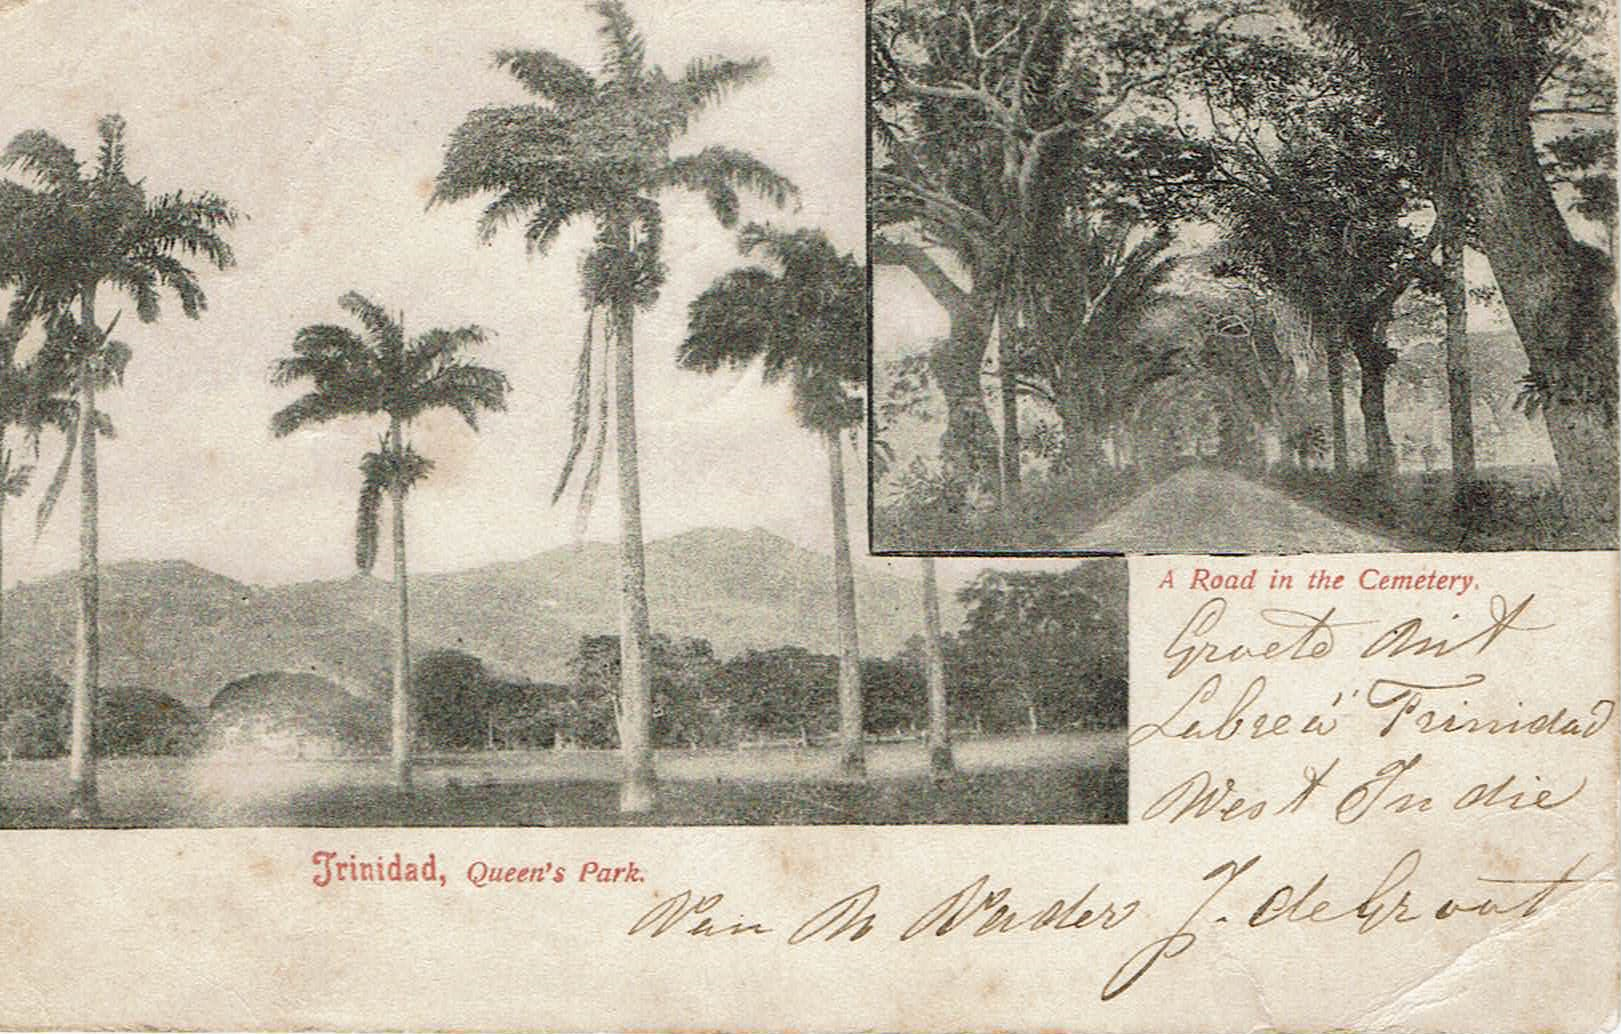 A Road in the Cemetery.
Groete Uit
Labrea Trinidad
West Indie
Trinidad, Queen's Park.
Van U Vader J. de Groot